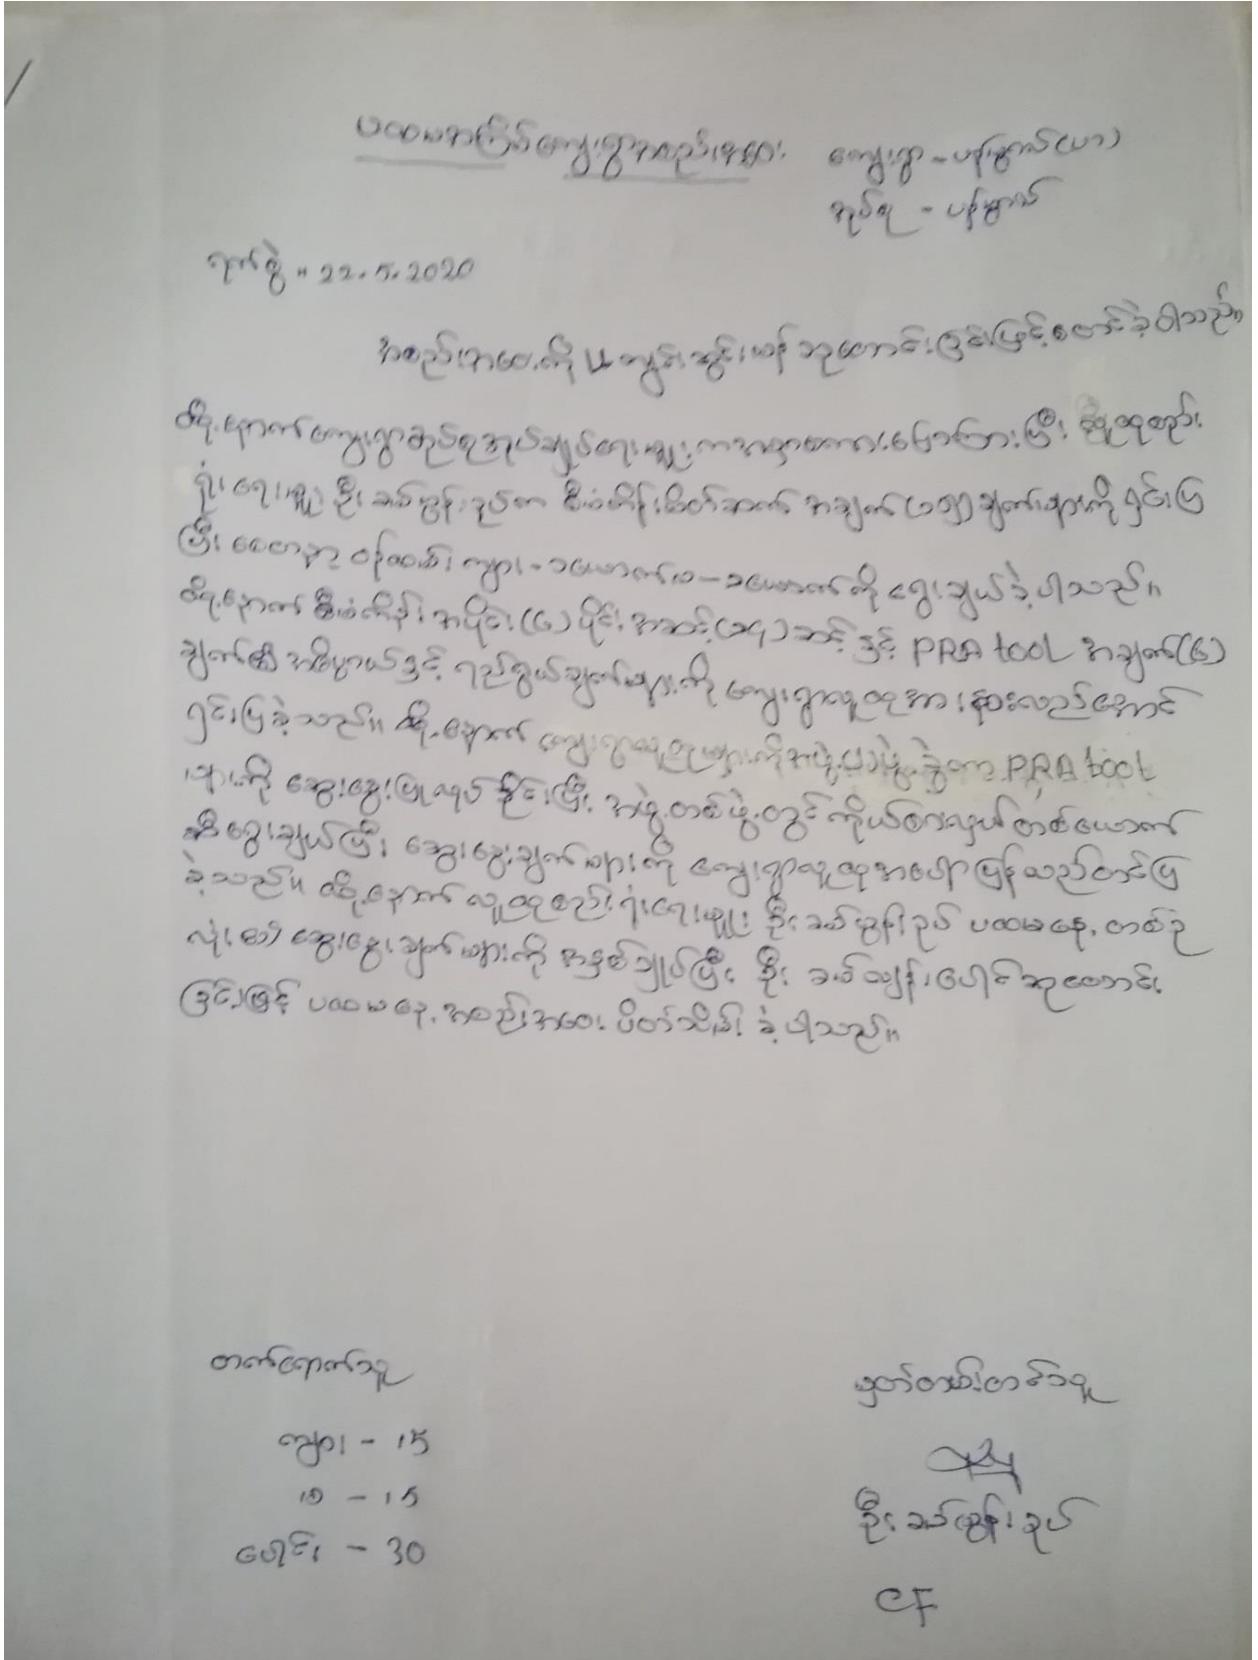 ပထမအကြိမ်ကျေးရွာအစည်းအဝေး
ကျေးရွာ - ပန်မွာလ် (ဟ)
အုပ်စု - ပန်မွာလ်
ရက်စွဲ ။ 22.5.2020
အစည်းအဝေးကို ဆုတောင်းခြင်းဖြင့်စတင်ခဲ့ပါသည်။
ထို့နောက်ကျေးရွာအုပ်စုအုပ်ချုပ်ရေးမှူးကအမှာစကားပြောကြားပြီး လူထုစည်း
ရုံးရေးမှူး ဦးခမ်မွန်းခုပ်က စီမံကိန်းမိတ်ဆက် အချက်(၁၅)ချက်များကို ရှင်းပြ
ပြီး စေတနာ့ဝန်ထမ်း ကျား-၁ယောက် မ-၁ယောက်ကို ရွေးချယ်ခဲ့ပါသည်။
ထို့နောက် စီမံကိန်းအပိုင်း(၆)ပိုင်း အဆင့်(၁၄)ဆင့် နှင့် PRA tool အချက်(၆)
ချက်၏ အဓိပ္ပာယ်နှင့် ရည်ရွယ်ချက်များကို ကျေးရွာလူထုအား နားလည်အောင်
ရှင်းပြခဲ့သည်။ ထို့နောက် ကျေးရွာလူထုများကိုအဖွဲ့ ဖွဲ့ခွဲကာ PRA tool
များကို ဆွေးနွေးပြုလုပ်ခိုင်းပြီး အဖွဲ့တစ်ဖွဲ့တွင် ကိုယ်စားလှယ်တစ်ယောက်
စီရွေးချယ်ပြီး ဆွေးနွေးချက်များကို ကျေးရွာလူထုအပေါ်ပြန်လည်တင်ပြ
ခဲ့သည်။ ထို့နောက် လူထုစည်းရုံးရေးမှူး ဦးခမ်မွန်းခုပ် ပထမနေ့ တစ်ခု
လုံး၏ ဆွေးနွေးချက်များကို အနှစ်ချုပ်ပြီး ဦးခမ်ကျွန်းပေါင်ဆုတောင်း
ခြင်းဖြင့် ပထမနေ့အစည်းအဝေး ပိတ်သိမ်းခဲ့ပါသည်။
တက်ရောက်သူ
ကျား - 15
မ - 15
ပေါင်း - 30
မှတ်တမ်းတင်သူ
ဦးခမ်မွန်းခုပ်
CF